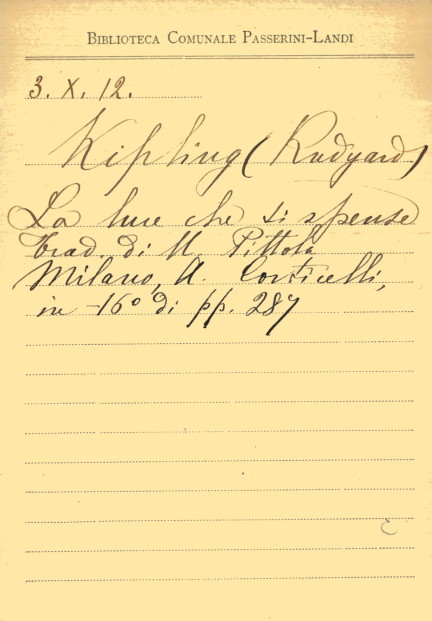 BIBLIOTECA COMUNALE PASSERINI-LANDI
3. X. 12.
Kipling (Rudyard)
La luce che si spense
Trad. di U. Pittola
Milano, A. Corticelli,
in -16° di pp. 287